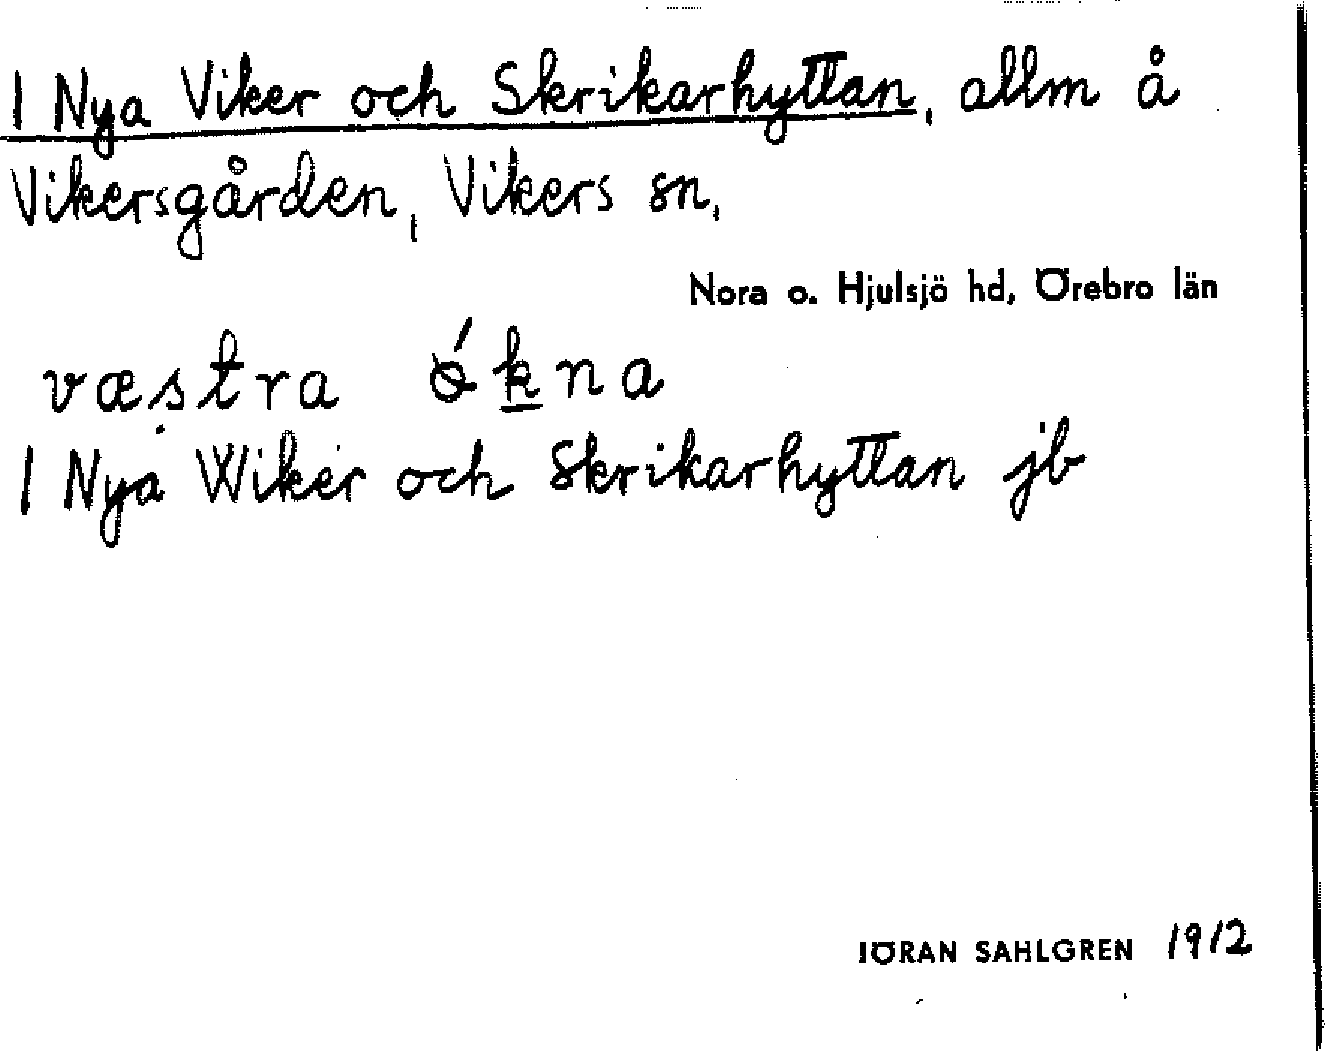 1 Nya Viker och Skrikarhyttan, allm å
Vikersgården, Vikers sn,
Nora o. Hjulsjö hd, Örebro län
væstra
1 Nya Wiker och Skrikarhyttan jb
JÖRAN SAHLGREN 1912